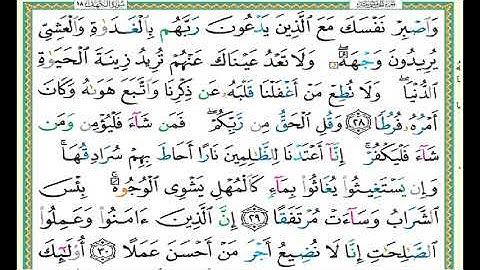 سورة الكهف ١٨
وَٱصْبِرْ نَفْسَكَ مَعَ ٱلَّذِينَ يَدْعُونَ رَبَّهُم بِٱلْغَدَوٰةِ وَٱلْعَشِىِّ
يُرِيدُونَ وَجْهَهُۥ ۖ وَلَا تَعْدُ عَيْنَاكَ عَنْهُمْ تُرِيدُ زِينَةَ ٱلْحَيَوٰةِ
ٱلدُّنْيَا ۖ وَلَا تُطِعْ مَنْ أَغْفَلْنَا قَلْبَهُۥ عَن ذِكْرِنَا وَٱتَّبَعَ هَوَىٰهُ وَكَانَ
أَمْرُهُۥ فُرُطًا ٢٨ وَقُلِ ٱلْحَقُّ مِن رَّبِّكُمْ ۖ فَمَن شَآءَ فَلْيُؤْمِن وَمَن
شَآءَ فَلْيَكْفُرْ ۚ إِنَّآ أَعْتَدْنَا لِلظَّٰلِمِينَ نَارًا أَحَاطَ بِهِمْ سُرَادِقُهَا ۚ
وَإِن يَسْتَغِيثُوا۟ يُغَاثُوا۟ بِمَآءٍ كَٱلْمُهْلِ يَشْوِى ٱلْوُجُوهَ ۚ بِئْسَ
ٱلشَّرَابُ وَسَآءَتْ مُرْتَفَقًا ٢٩ إِنَّ ٱلَّذِينَ ءَامَنُوا۟ وَعَمِلُوا۟
ٱلصَّٰلِحَٰتِ إِنَّا لَا نُضِيعُ أَجْرَ مَنْ أَحْسَنَ عَمَلًا ٣٠ أُو۟لَٰٓئِكَ